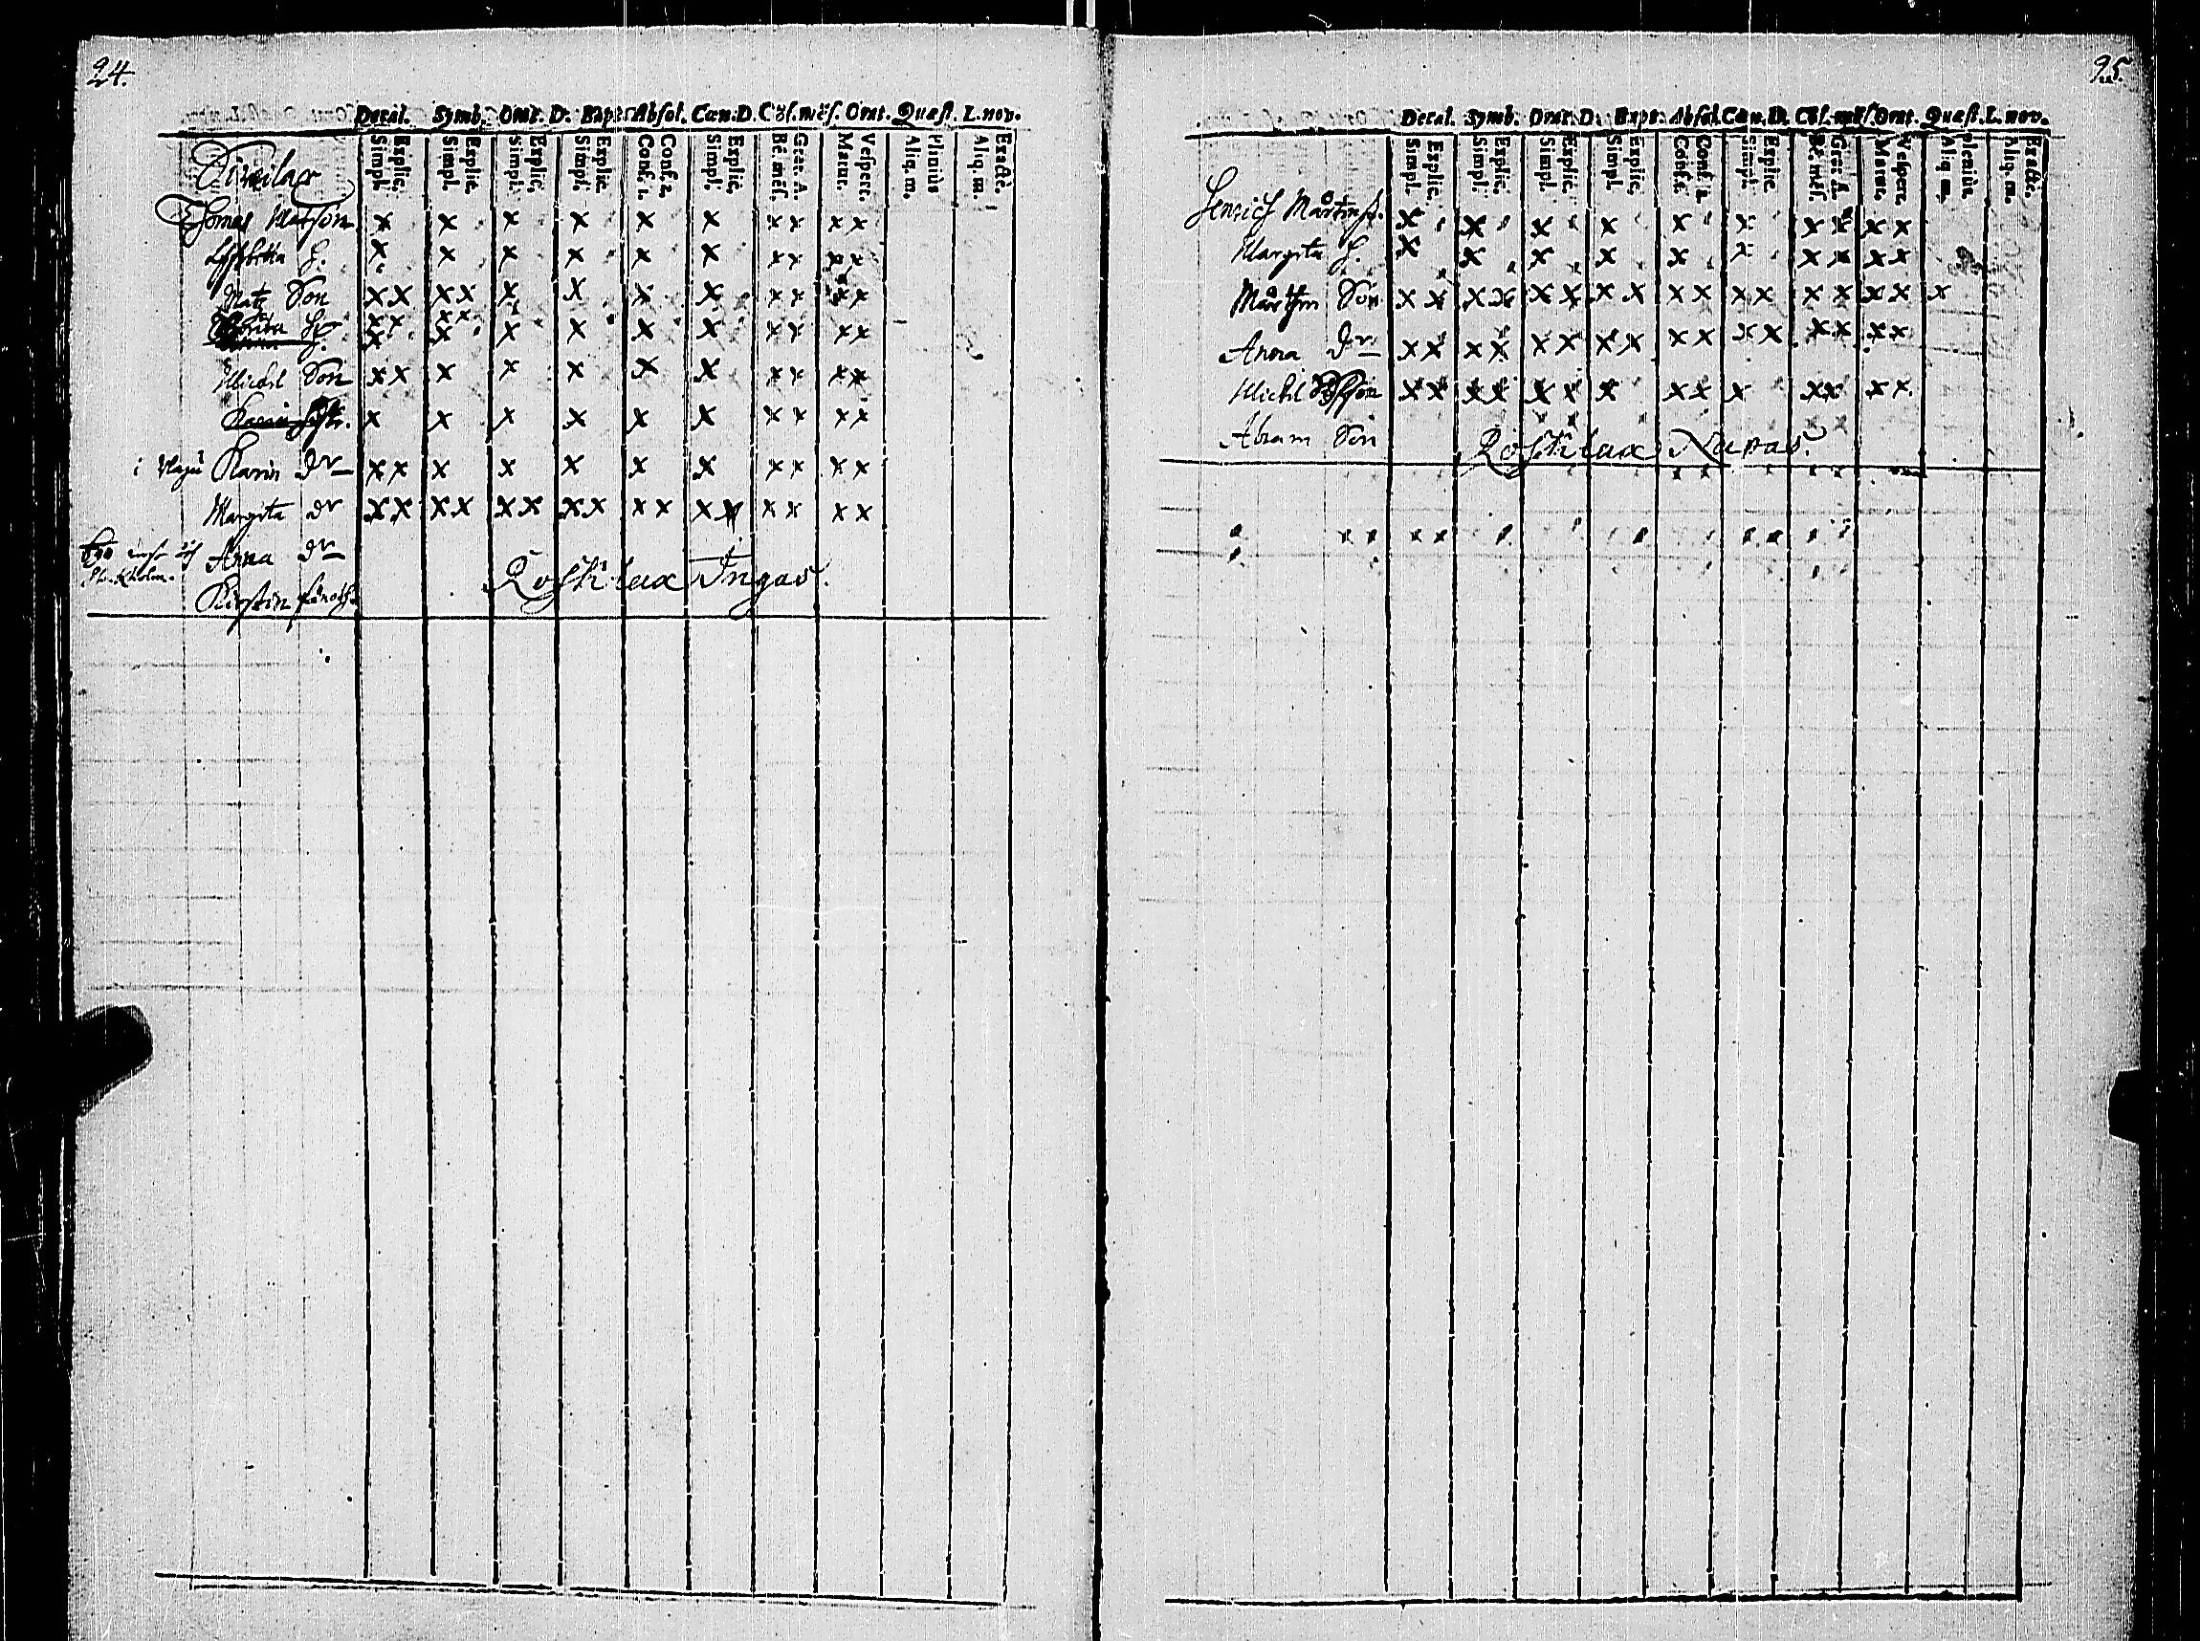 24.
Decal. Symb. Orat. D. Bapt. Absol. Cœn. D. Cōf. mēs. Orat. Quæst. L. nov.
Simpl. Explic. Simpl. Explic. Simpl. Explic. Simpl. Explic. Conf. 1. Conf. 2. Simpl. Explic. Be. mēs. Grat. A. Matut. Vespert. Aliq. m. Pleniùs Aliq. m. Exactè.
Thomas Matsson x x x x x x x x x x
h. x x x x x x x x x x
Matz Son x x x x x x x x x x x x
h. x x x x x x x x x x
Michel Son x x x x x x x x x x x
Karin x x x x x x x x x x
i Karin dr x x x x x x x x x x x
Margeta dr x x x x x x x x x x x x x x x x
Anna dr
Stockholm.
Kirstin
Rostilax Ingas.
95.
Decal. Symb. Orat. D. Bapt. Absol. Cœn. D. Cōf. mēs. Orat. Quæst. L. nov.
Simpl. Explic. Simpl. Explic. Simpl. Explic. Simpl. Explic. Conf. 1. Conf. 2. Simpl. Explic. Be. mēs. Grat. A. Matut. Vespert. Aliq. m. Pleniùs Aliq. m. Exactè.
Henrich Mårtenss. x x x x x x x x x x
Margeta h. x x x x x x x x x x
Mårthen Son x x x x x x x x x x x x x x x x x
Anna dr x x x x x x x x x x x x x x x x
Michel x x x x x x x x x x x x x x
Abram Son
Rostilax Nupas.